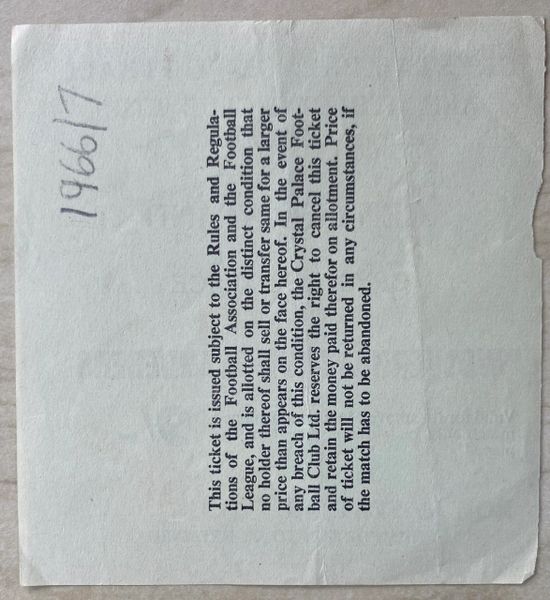 1966/7
This ticket is issued subject to the Rules and Regula-
tions of the Football Association and the Football
League, and is allotted on the distinct condition that
no holder thereof shall sell or transfer same for a larger
price than appears on the face hereof. In the event of
any breach of this condition, the Crystal Palace Foot-
ball Club Ltd. reserves the right to cancel this ticket
and retain the money paid therefor on allotment. Price
of ticket will not be returned in any circumstances, if
the match has to be abandoned.